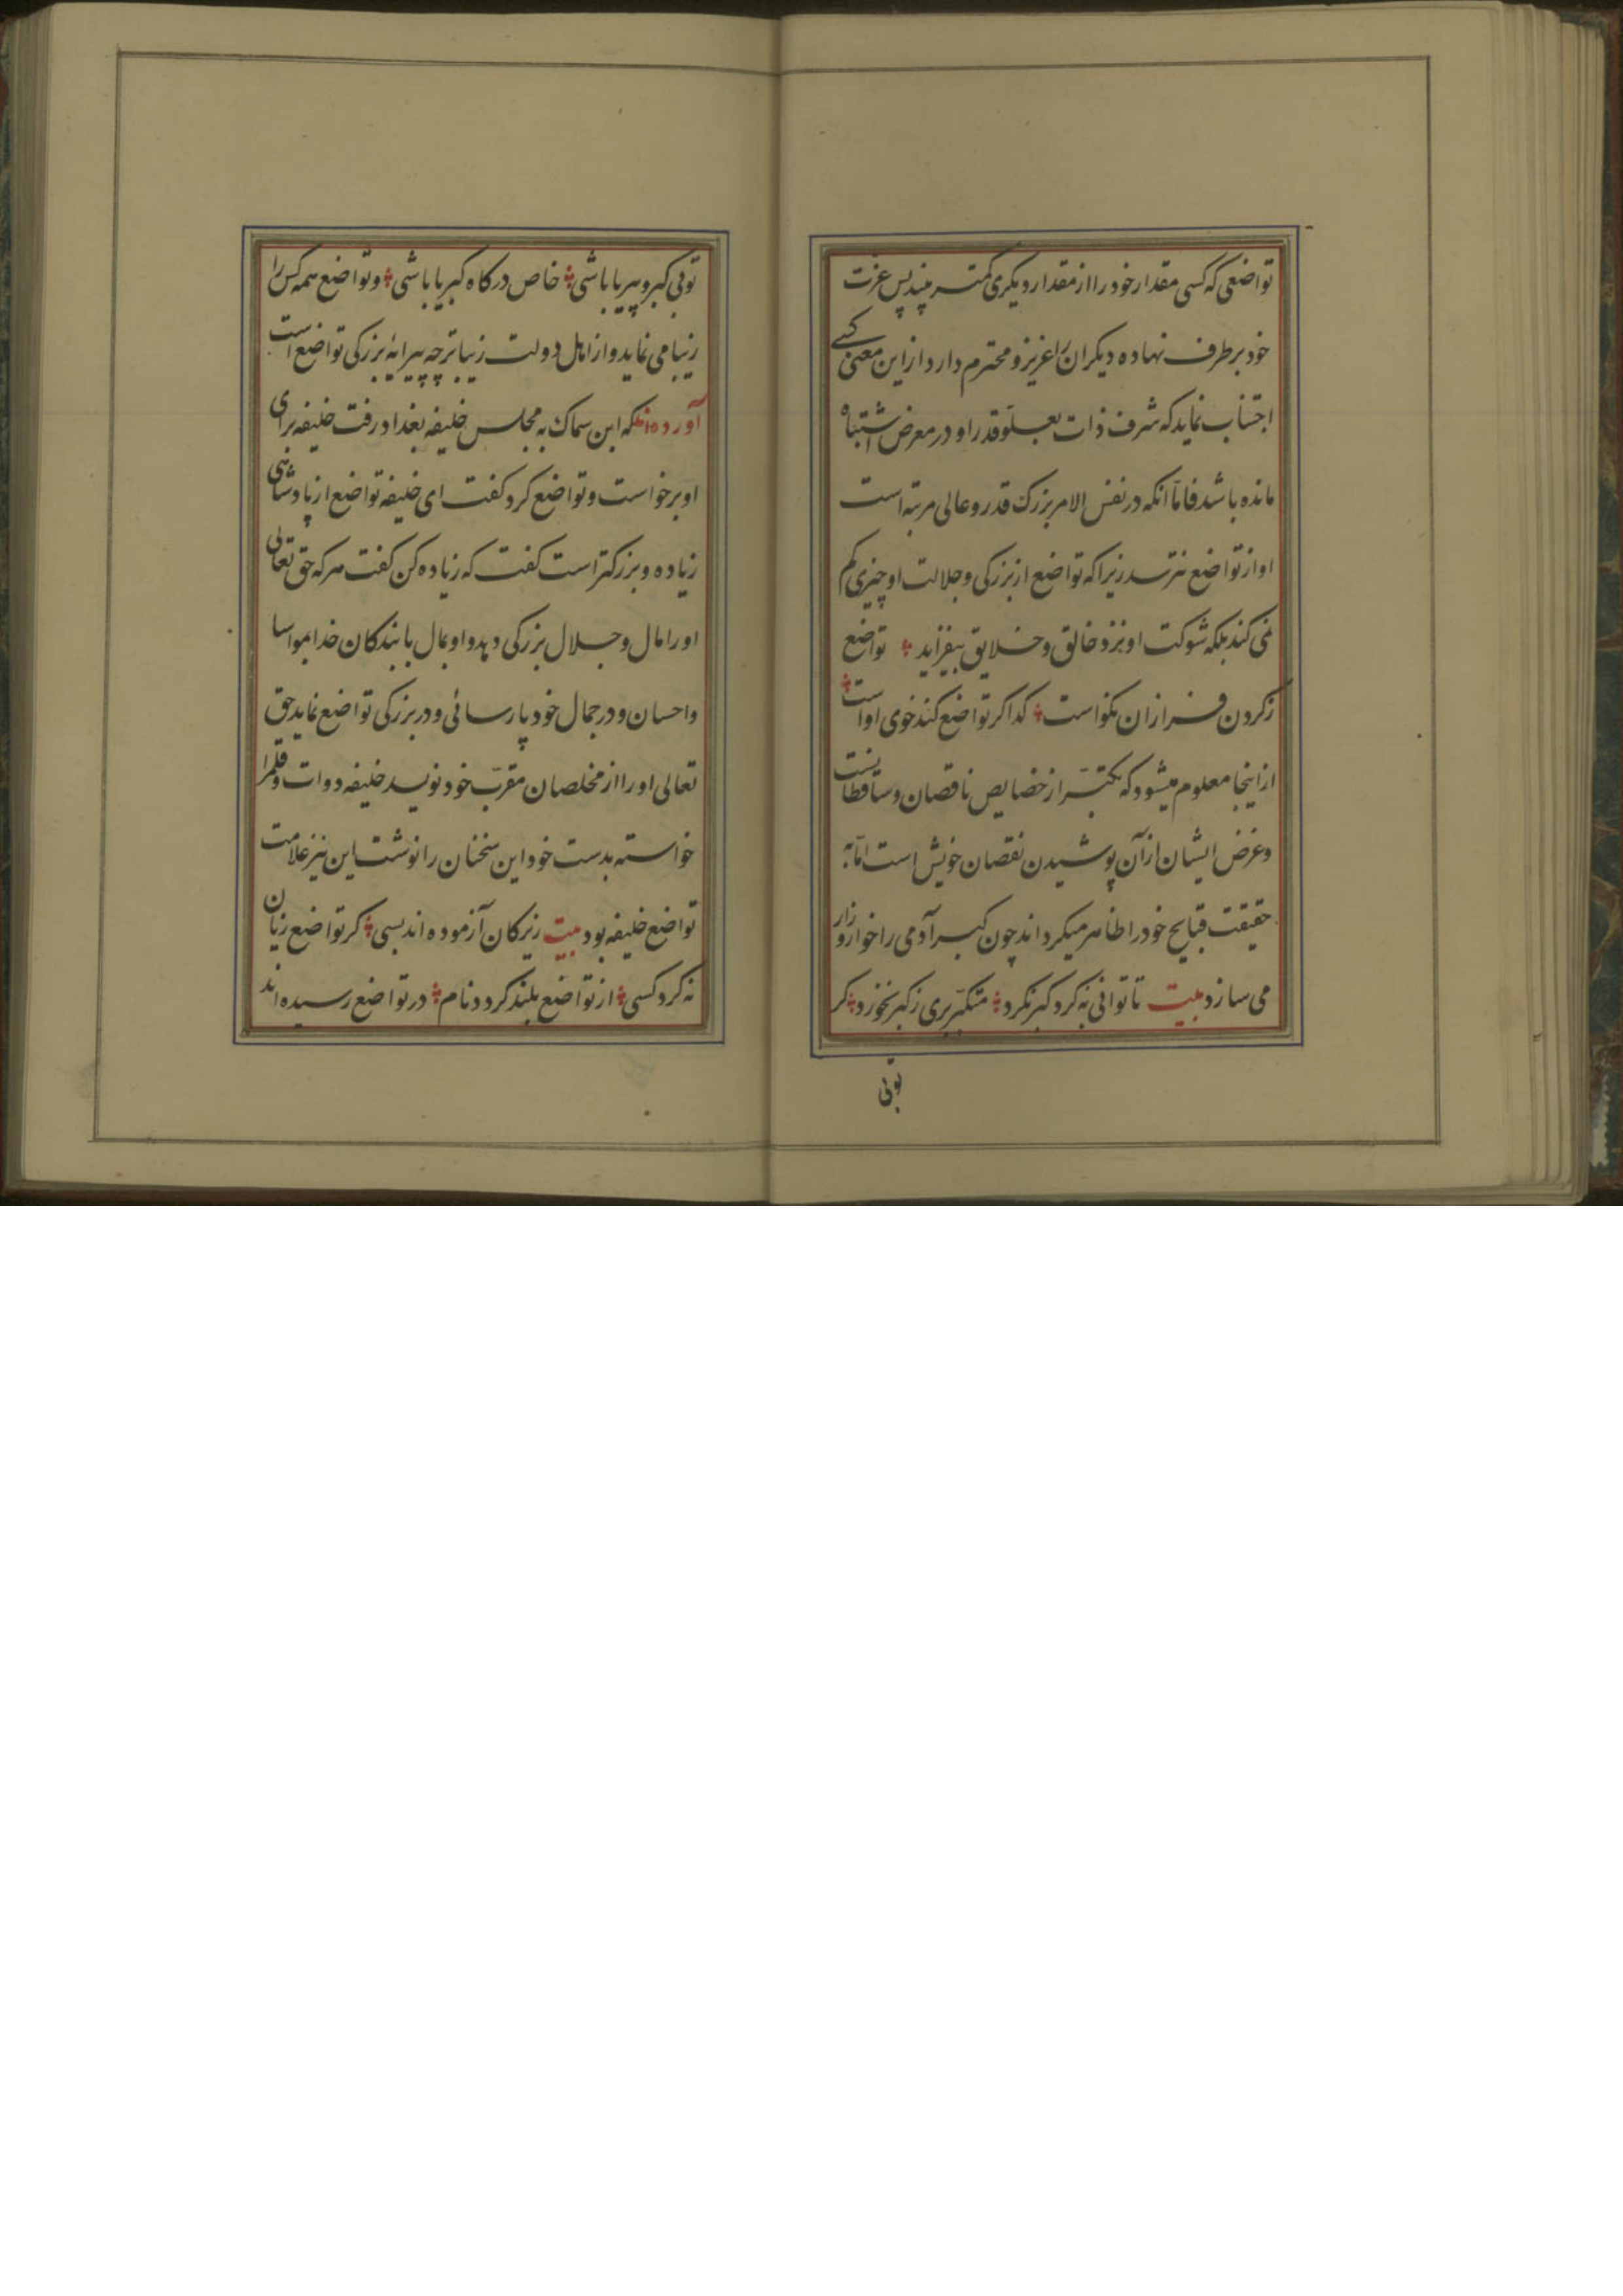 تواضعی که کسی مقدار خود را از مقدار دیکری کمتر بیند پس عزت
خود بر طرف نهاده دیکران را عزیز و محترم دارد از این معنی کسی
اجتناب نماید که شرف ذات بعلو قدر او در معرض اشتباه
مانده باشد فاما انکه در نفس الامر بزرک قدر و عالی مرتبه است
او از تواضع نترسد زیرا که تواضع از بزرکی و جلالت او چیزی کم
نمی کند بلکه شوکت او نزد خالق و خلایق بیفزاید تواضع
ز کردن فرازان نکو است کدا کر تواضع کند خوی او است
از اینجا معلوم میشود که تکبّر از خصایص ناقصان و ساقطانست
و غرض ایشان از آن پوشیدن نقصان خویش است امّا به
حقیقت قبایح خود را ظاهر میکرداند چون کبر آدمی را خوار و زار
می سازد بیت تا توانی به کرد کبر نکرد متکبّر بری ز کبر نخورد کر
توبی
توبی کبر و بیریا باشی خاص درکاه کبریا باشی و تواضع همه کس را
زیبا می نماید و از اهل دولت زیباتر چه پیرایهٔ بزرکی تواضع است
آورده‌اند که ابن سماک به مجلس خلیفه بغداد رفت خلیفه برای
او برخواست و تواضع کرد کفت ای خلیفه تواضع از پادشاهی
زیاده و بزرکتر است کفت که زیاده کن کفت هر که حق تعالی
او را مال و جلال بزرکی دهد و او بمال با بندکان خدا بمواسا
و احسان و در جمال خود پارسائی و در بزرکی تواضع نماید حق
تعالی او را از مخلصان مقرّب خود نویسد خلیفه دوات و قلمرا
خواسته بدست خود این سخنان را نوشت این نیز علامت
تواضع خلیفه بود بیت زیرکان آزموده اند بسی کر تواضع زیان
نه کرد کسی از تواضع بلند کردد نام در تواضع رسیده اند